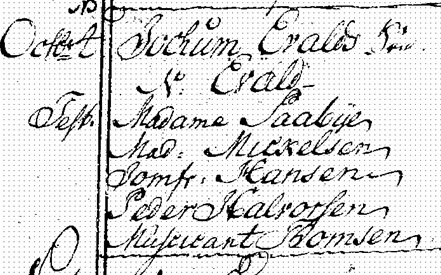 Jochum Evalds
N: Evald
Test: Madame Saabÿe
Mad: Mickelsen
Jomfr: Hansen
Peder Halvorsen
Musicant Thomsen